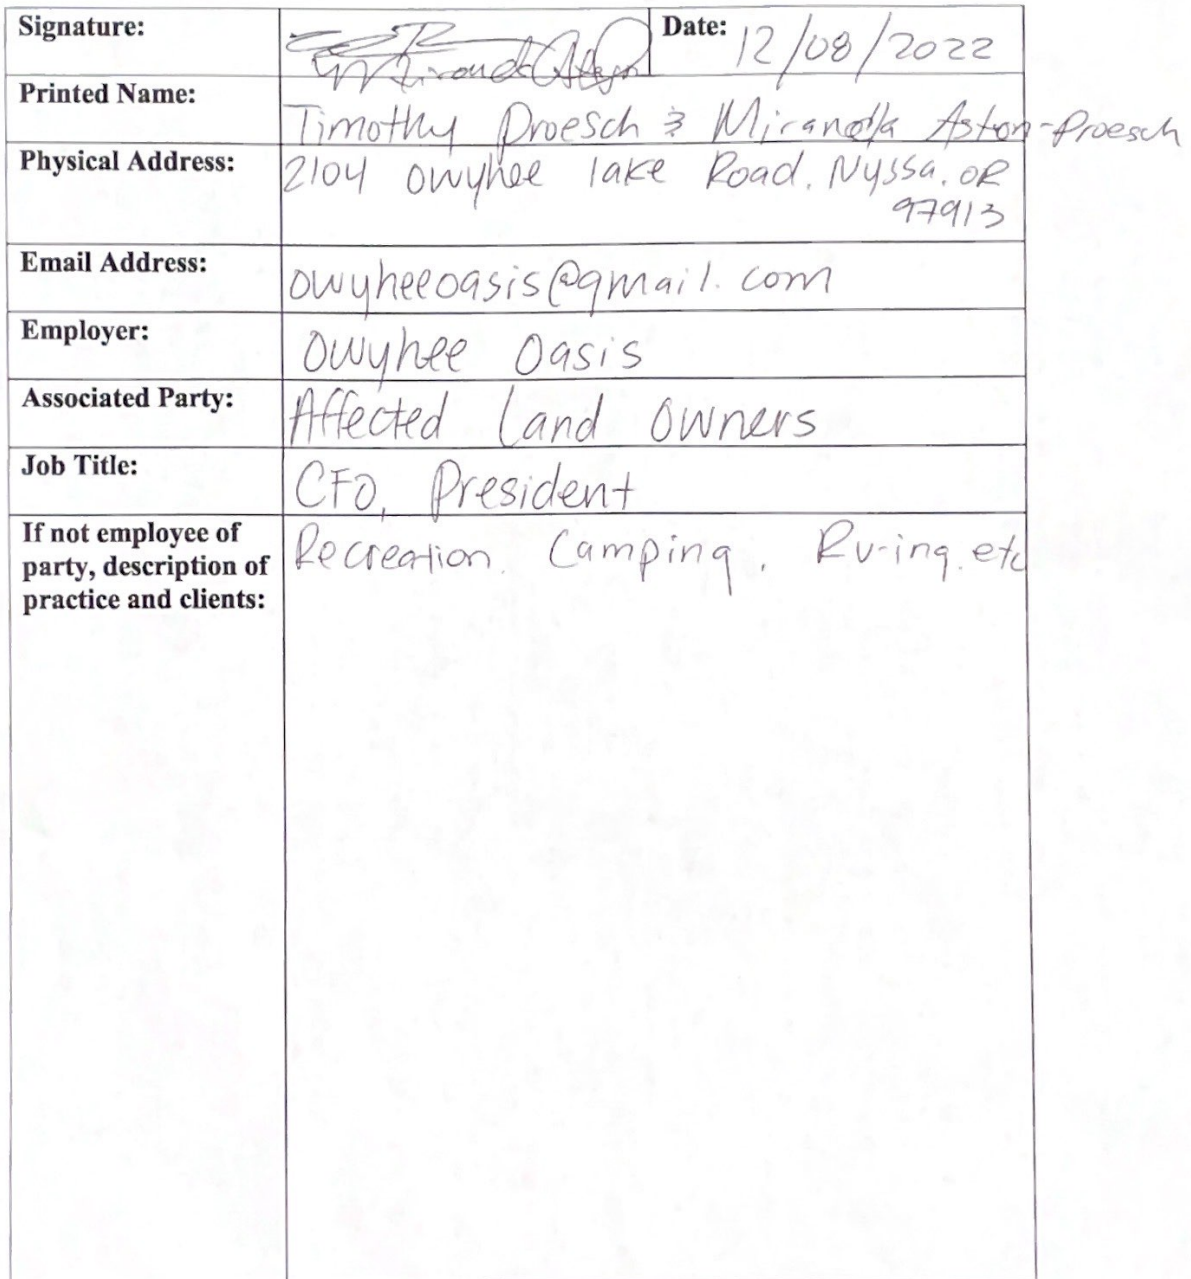 Signature: Miranda Aston Date: 12/08/2022
Printed Name: Timothy Proesch & Miranda Aston-Proesch
Physical Address: 2104 Owyhee lake Road, Nyssa, OR
97913
Email Address: owyheeoasis@gmail.com
Employer: Owyhee Oasis
Associated Party: Affected Land Owners
Job Title: CFO, President
If not employee of Recreation, Camping, Rv-ing, etc
party, description of
practice and clients: